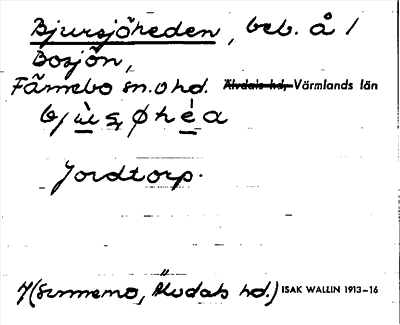 Bjursjöheden, beb. å 1
Bosjön,
Färnebo sn. o hd. Älvdals hd, Värmlands län
Jordtorp.
1) (Sunnemo, Älvdals hd.) ISAK WALLIN 1913–16